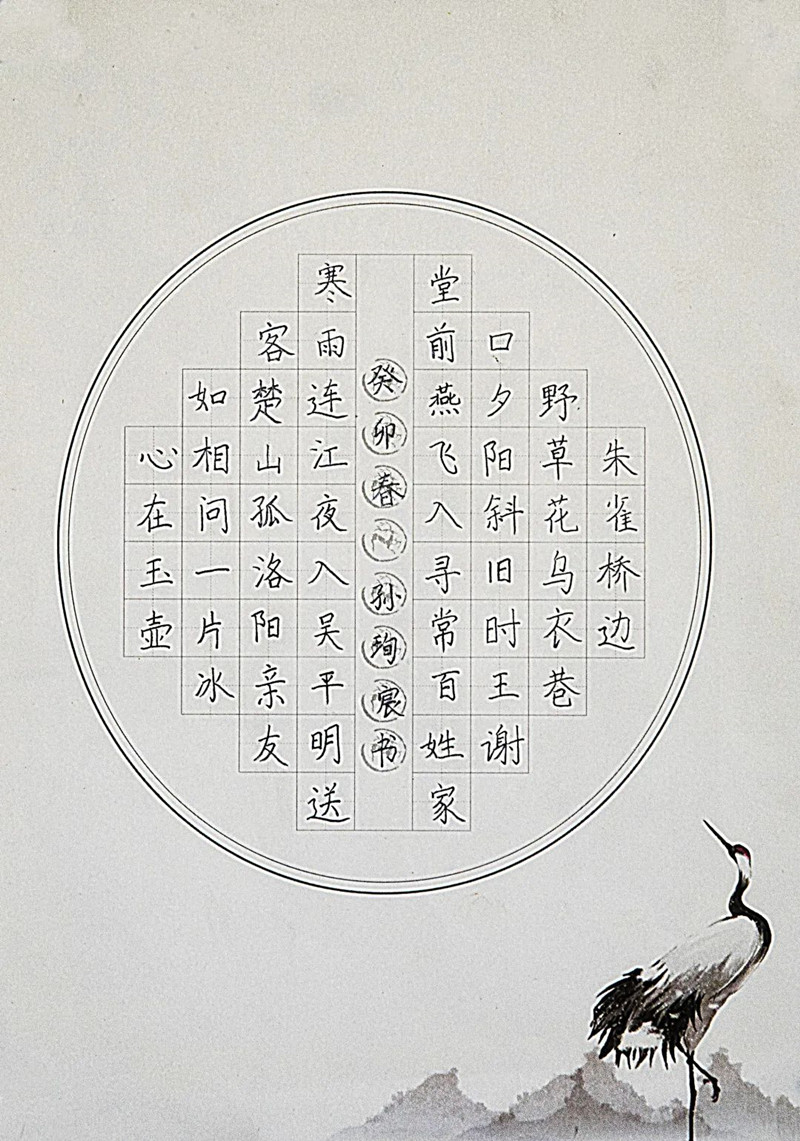 朱雀桥边
野草花乌衣巷
口夕阳斜旧时王谢
堂前燕飞入寻常百姓家
癸卯春孙珣宸书
寒雨连江夜入吴平明送
客楚山孤洛阳亲友
如相问一片冰
心在玉壶